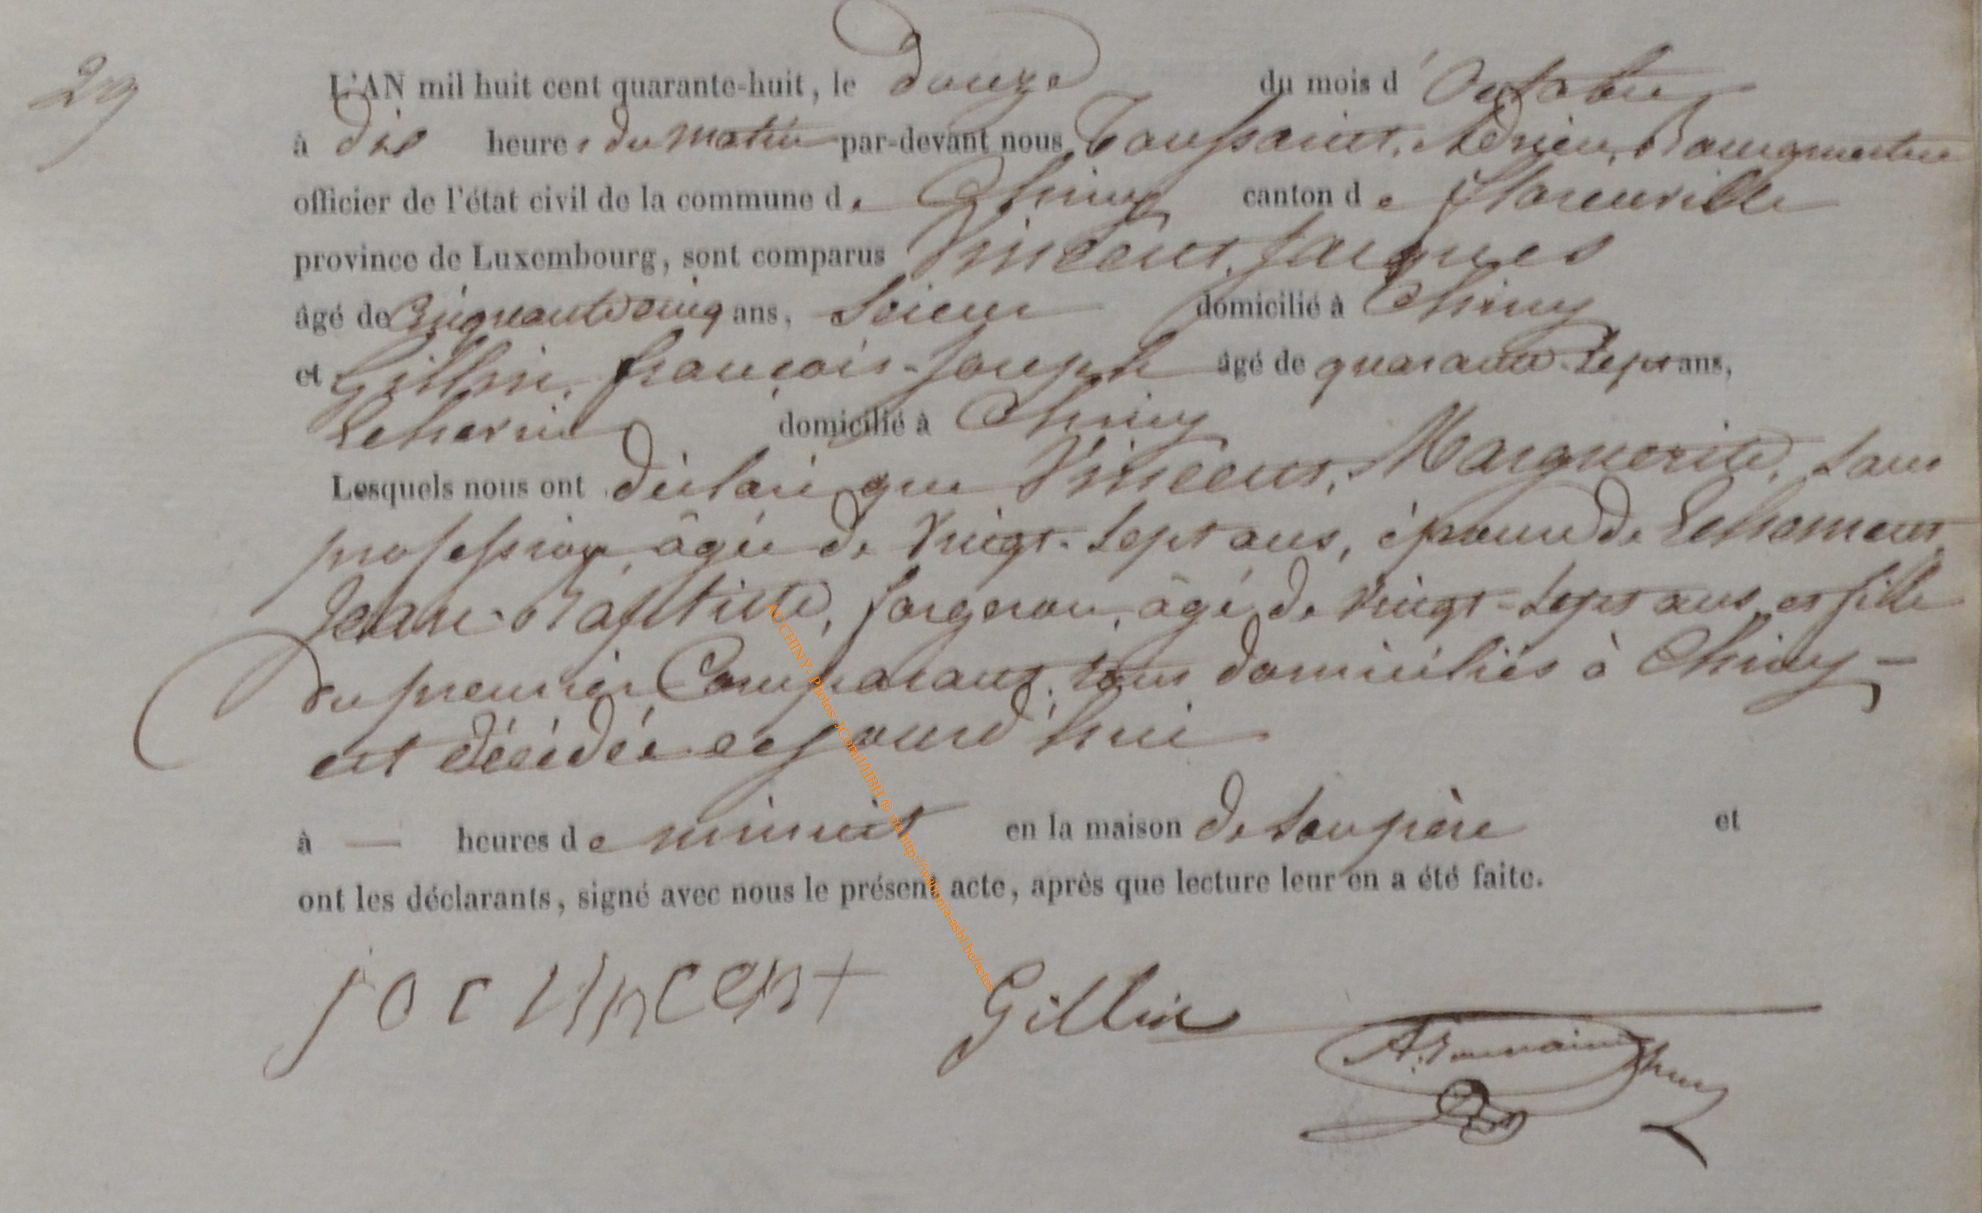 29
L'AN mil huit cent quarante-huit, le douze du mois d'Octobre
à dix heures du matin par-devant nous Toussaint, Adrien, Bourgmestre
officier de l'état civil de la commune de Chiny canton de Florenville
province de Luxembourg, sont comparus Vincent, Jacques
âgé de Cinquante cinq ans, Scieur domicilié à Chiny
et Gillin, françois-Joseph âgé de quarante-Sept ans,
domicilié à Chiny
Lesquels nous ont déclaré que Vincent, Marguerite, sans
profession, âgée de Vingt-Sept ans, épouse de
Jean-Baptiste, forgeron, âgé de Vingt-Sept ans, et fille
du premier Comparant, tous domiciliés à Chiny -
est décédée aujourd'hui
à — heures de minuit en la maison de Son père et
ont les déclarants, signé avec nous le présent acte, après que lecture leur en a été faite.
jac vincent Gillin
A. Toussaint
AD CHINY